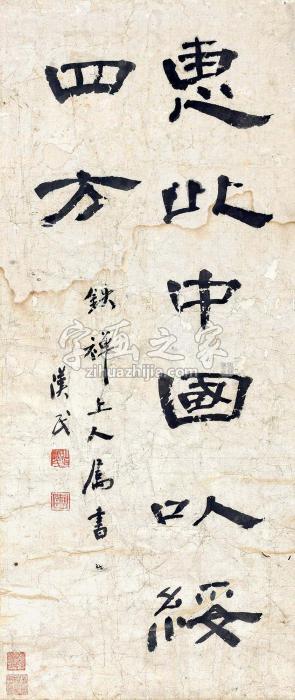 惠此中國以綏
四方
鉄禪上人屬書
漢民
字画之家
zihuazhijia.com